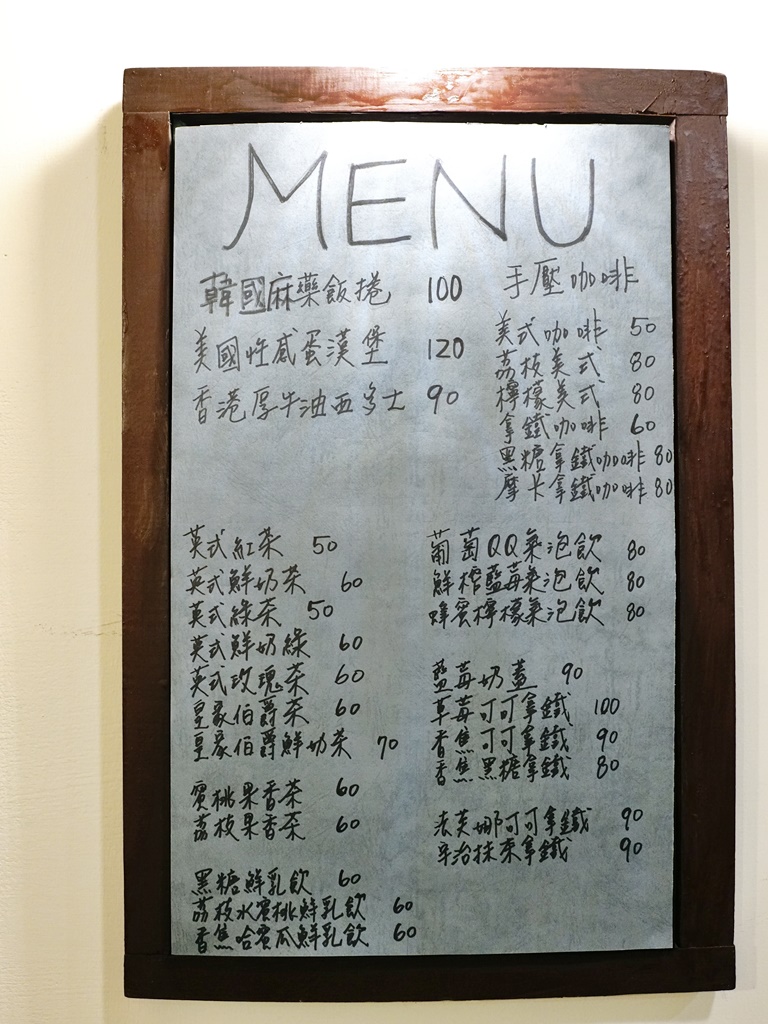 MENU
韓國麻藥飯捲 100
美國性感蛋漢堡 120
香港厚牛油西多士 90
手壓咖啡
美式咖啡 50
荔枝美式 80
檸檬美式 80
拿鐵咖啡 60
黑糖拿鐵咖啡 80
摩卡拿鐵咖啡 80
英式紅茶 50
英式鮮奶茶 60
英式綠茶 50
英式鮮奶綠 60
英式玫瑰茶 60
皇家伯爵茶 60
皇家伯爵鮮奶茶 70
蜜桃果香茶 60
荔枝果香茶 60
黑糖鮮乳飲 60
荔枝水蜜桃鮮乳飲 60
香焦哈蜜瓜鮮乳飲 60
葡萄QQ氣泡飲 80
鮮榨藍莓氣泡飲 80
蜂蜜檸檬氣泡飲 80
藍莓奶蓋 90
草莓可可拿鐵 100
香焦可可拿鐵 90
香焦黑糖拿鐵 80
表芙娜可可拿鐵 90
辛治抹來拿鐵 90